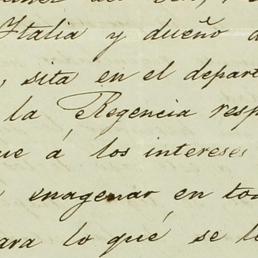 Italia y dueño
sita en el depart
la Regencia resp
ue á los intereses
enagenar en to
ara lo qué se